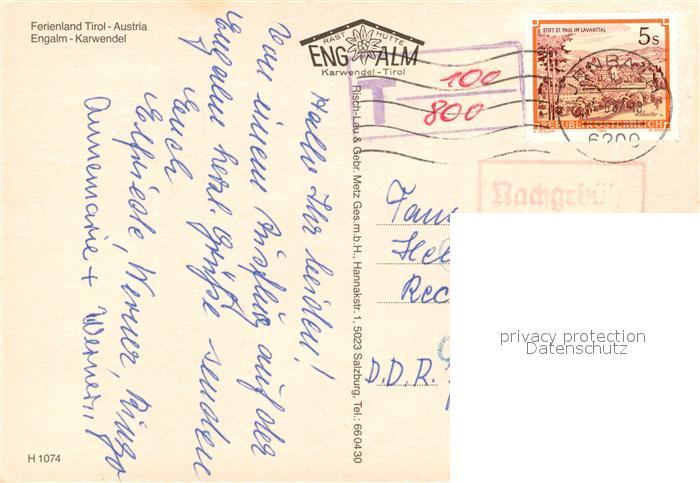 Ferienland Tirol - Austria
Engalm - Karwendel
RAST HÜTTE
ENG ALM
Karwendel - Tirol
T 100
800
STIFT ST. PAUL IM LAVANTTAL
5s
REPUBLIK ÖSTERREICH
JENBACH
6200
Nachgebühr
Hallo Ihr beiden!
Von einem Ausflug auf der
Engalm herzl. Grüße senden
Euch
Elfriede, Werner, Ringo
Annemarie + Werner
Risch-Lau & Gebr. Metz Ges.m.b.H., Hannakstr. 1, 5023 Salzburg, Tel.: 660430
Fam
Hel
Rec
D.D.R.
H 1074
privacy protection
Datenschutz